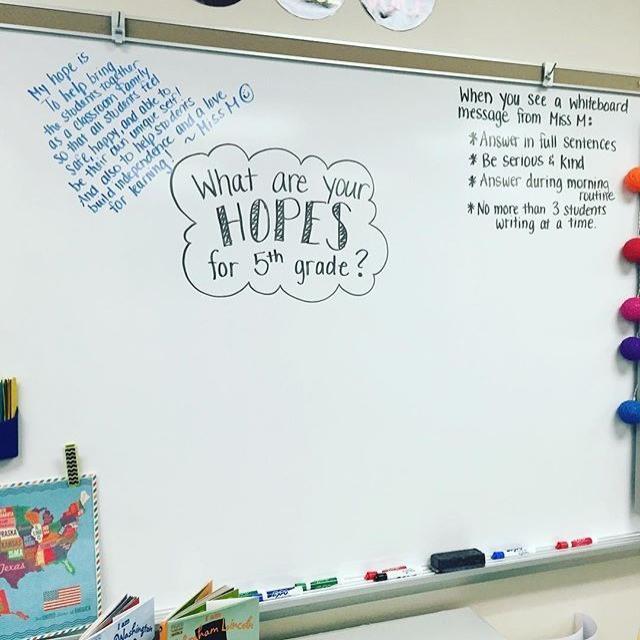 My hope is
To help bring
the students together
as a classroom family
so that all students feel
safe, happy, and able to
be their own unique self!
And also to help students
build independence and a love
for learning! ~ Miss M
What are your
HOPES
for 5th grade?
When you see a whiteboard
message from Miss M:
* Answer in full sentences
* Be serious & kind
* Answer during morning
routine
* No more than 3 students
writing at a time.
Texas
I am
Washington
Abraham Lincoln